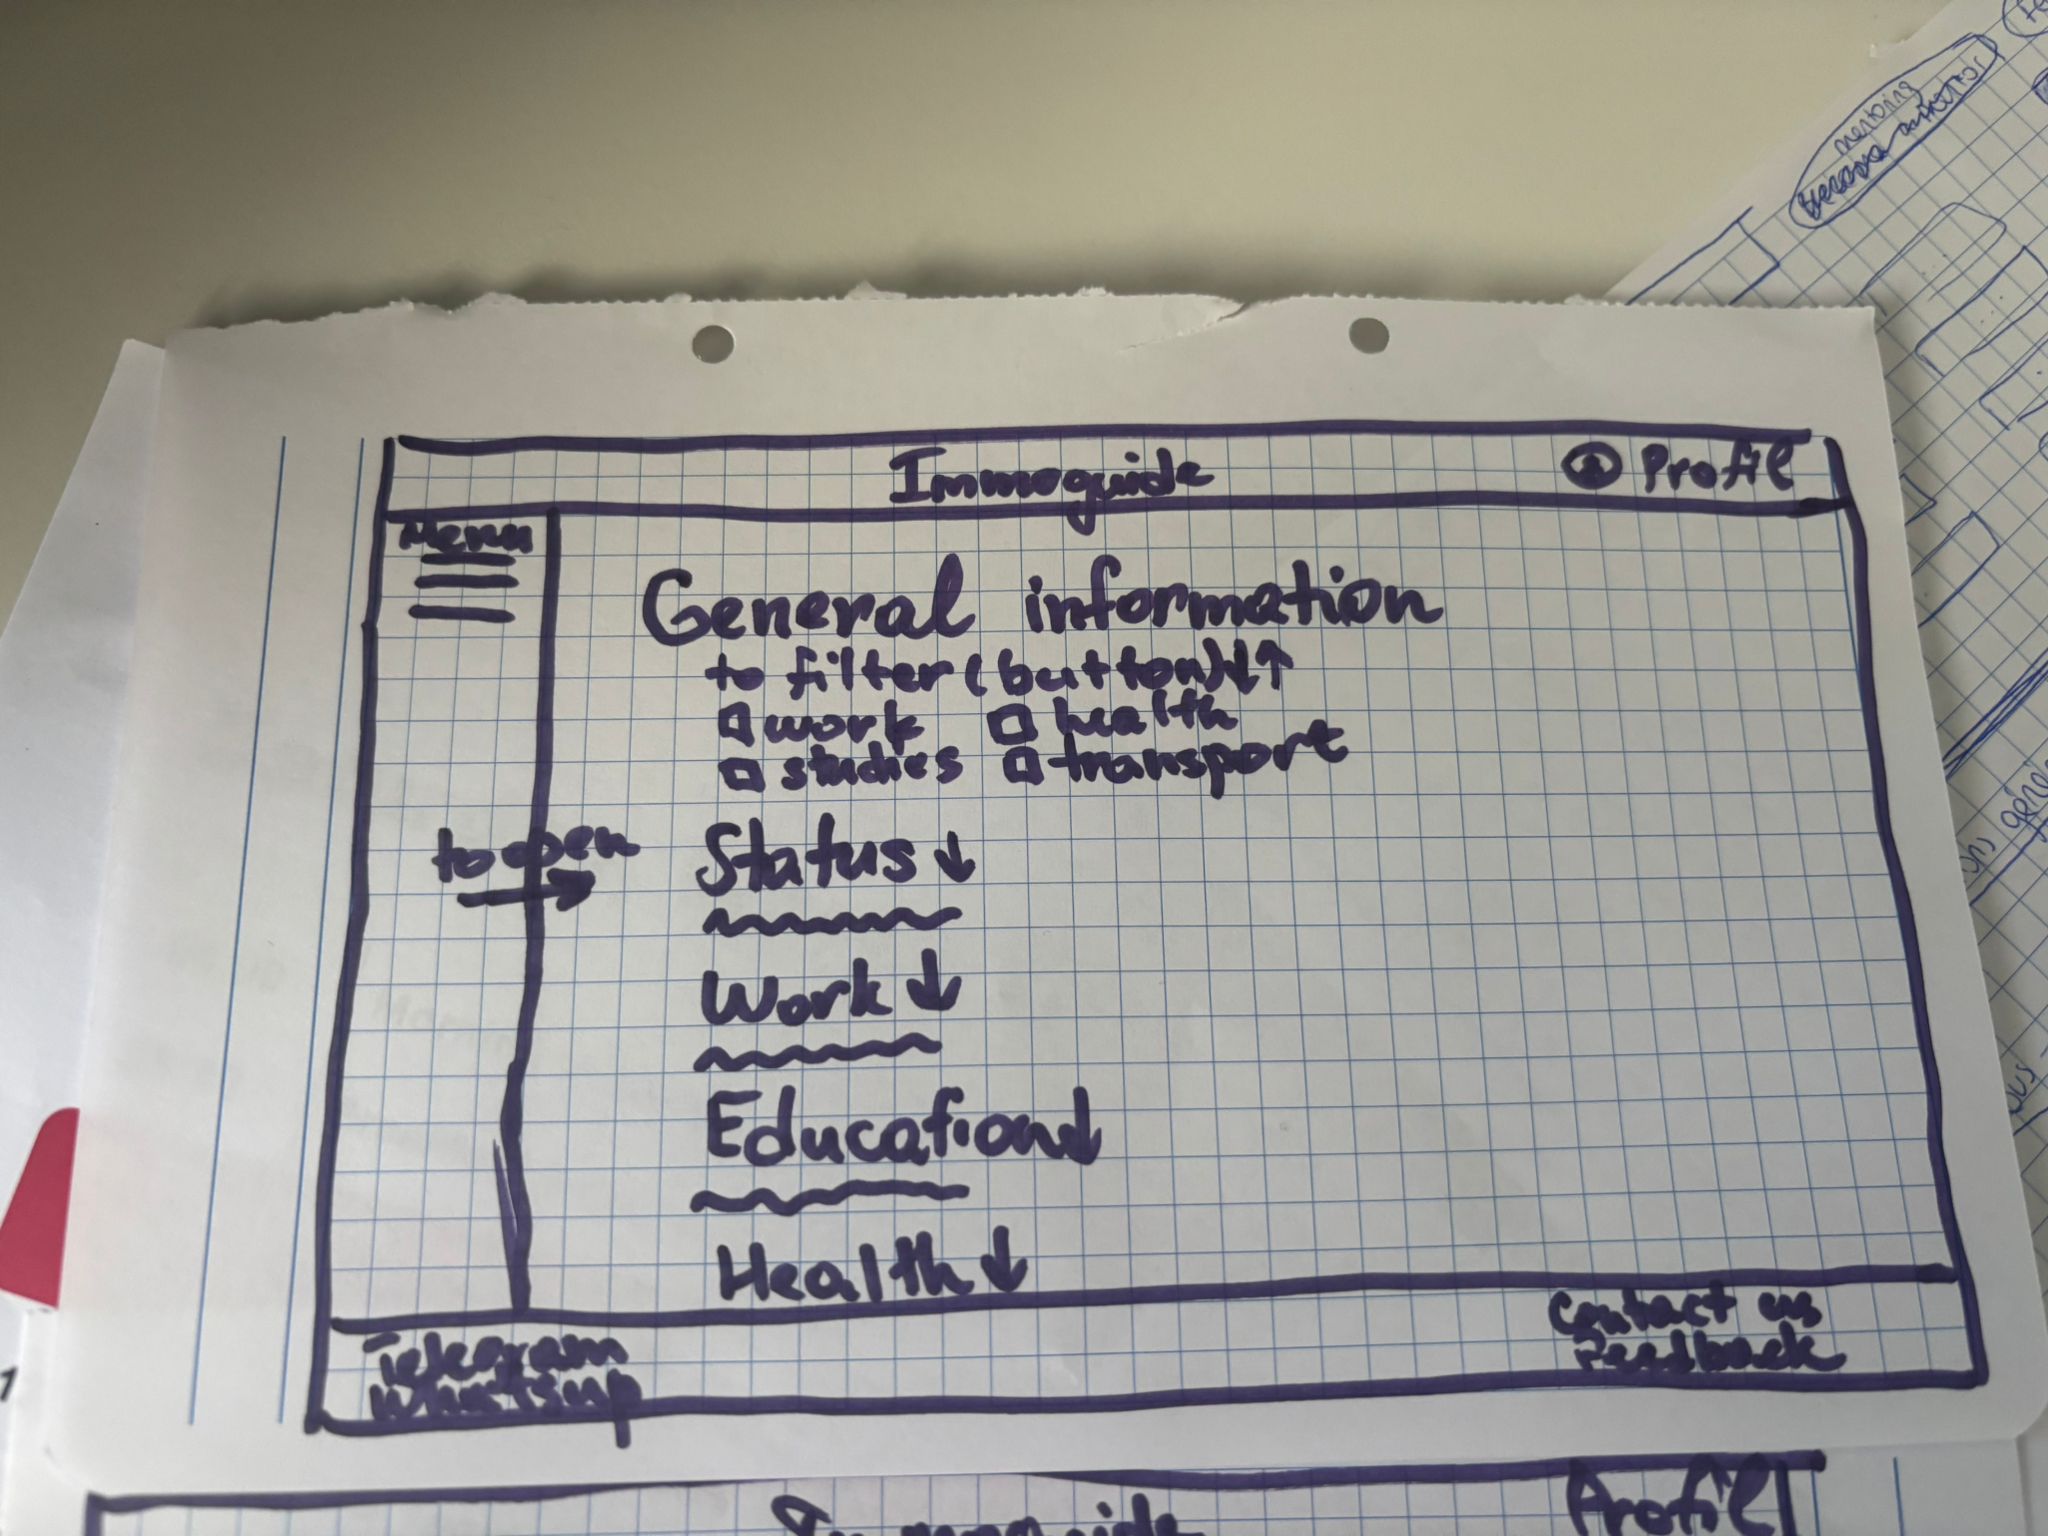 Immoguide
Profil
Menu
General information
to filter (button) ↓↑
work
health
studies
transport
to open
Status ↓
Work ↓
Education ↓
Health ↓
Telegram
Whatsup
Contact us
Feedback
Profil